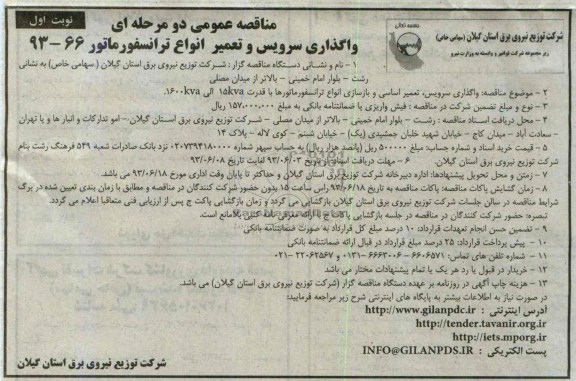 نوبت اول
بسمه تعالی
شرکت توزیع نیروی برق استان گیلان (سهامی خاص)
زیر مجموعه شرکت توانیر و وابسته به وزارت نیرو
مناقصه عمومی دو مرحله ای
واگذاری سرویس و تعمیر انواع ترانسفورماتور ۶۶-۹۳
۱ - نام و نشانی دستگاه مناقصه گزار : شرکت توزیع نیروی برق استان گیلان (.سهامی خاص) به نشانی
رشت - بلوار امام خمینی - بالاتر از میدان مصلی
۲ - موضوع مناقصه: واگذاری سرویس، تعمیر اساسی و بازسازی انواع ترانسفورماتورها با قدرت ۱۵kva الی ۱۶۰۰kva.
۳ - نوع و مبلغ تضمین شرکت در مناقصه : فیش واریزی یا ضمانتنامه بانکی به مبلغ ۱۵۷،۰۰۰،۰۰۰ ریال
۴ - محل دریافت اسناد مناقصه : رشت - بلوار امام خمینی - بالاتر از میدان مصلی - شرکت توزیع نیروی برق استان گیلان- امو تدارکات و انبار ها و یا تهران
- سعادت آباد - میدان کاج - خیابان شهید خلبان جمشیدی (یک) - خیابان شبنم - کوی لاله - پلاک ۱۴
۵ - قیمت خرید اسناد و شماره حساب: مبلغ ۵۰۰۰۰۰ ریال (پانصد هزار ریال) به حساب سپهر شماره ۰۲۰۷۳۹۴۱۸۰۰۰۰ نزد بانک صادرات شعبه ۵۴۹ فرهنگ رشت بنام
شرکت توزیع نیروی برق استان گیلان. ۶ - مهلت دریافت اسناد: از تاریخ ۹۳/۰۶/۰۳ لغایت تاریخ ۹۳/۰۶/۰۸
۷ - زمتن و محل تحویل پیشنهادها: اداره دبیرخانه شرکت توزیع برق استان گیلان و حداکثر تا پایان وقت اداری مورخ ۹۳/۰۶/۱۸ می باشد.
۸ - زمان گشایش پاکات مناقصه: پاکات مناقصه به تاریخ ۹۳/۰۶/۱۸ راس ساعت ۱۵ بدون حضور شرکت کنندگان در مناقصه و مطابق با زمان بندی تعیین شده در برگ
شرایط مناقصه در سالن جلسات شرکت توزیع نیروی برق استان گیلان بازگشایی می گردد و زمان بازگشایی پاکت ج پس از ارزیابی فنی متعاقبا اعلام می گردد.
تبصره: حضور شرکت کنندگان در مناقصه در جلسه بازگشایی پاکات ج با ارائه معرفی نامه کتبی بلامانع است.
۹ - تضمین حسن انجام تعهدات قرارداد: ۱۰ درصد مبلغ کل قرارداد به صورت ضمانتنامه بانکی
۱۰ - پیش پرداخت قرارداد: ۲۵ درصد مبلغ قرارداد در قبال ارائه ضمانتنامه بانکی
۱۱ - شماره تلفن های تماس: ۶۶۰۶۵۷۱ - ۶۶۶۳۰۰۶-۰۱۳۱ و ۲۲۰۶۲۵۶۷-۰۲۱
۱۲ - خریدار در قبول یا رد هر یک یا تمام پیشنهادات مختار می باشد
۱۳ - هزینه چاپ آگهی در روزنامه بر عهده دستگاه مناقصه گزار (شرکت توزیع نیروی برق استان گیلان) می باشد.
در صورت نیاز به اطلاعات بیشتر به پایگاه های اینترنتی شرح زیر مراجعه فرمایید:
آدرس اینترنتی : http://www.gilanpdc.ir
http://tender.tavanir.org.ir
http://iets.mporg.ir
پست الکتریکی : INFO@GILANPDS.IR
شرکت توزیع نیروی برق استان گیلان